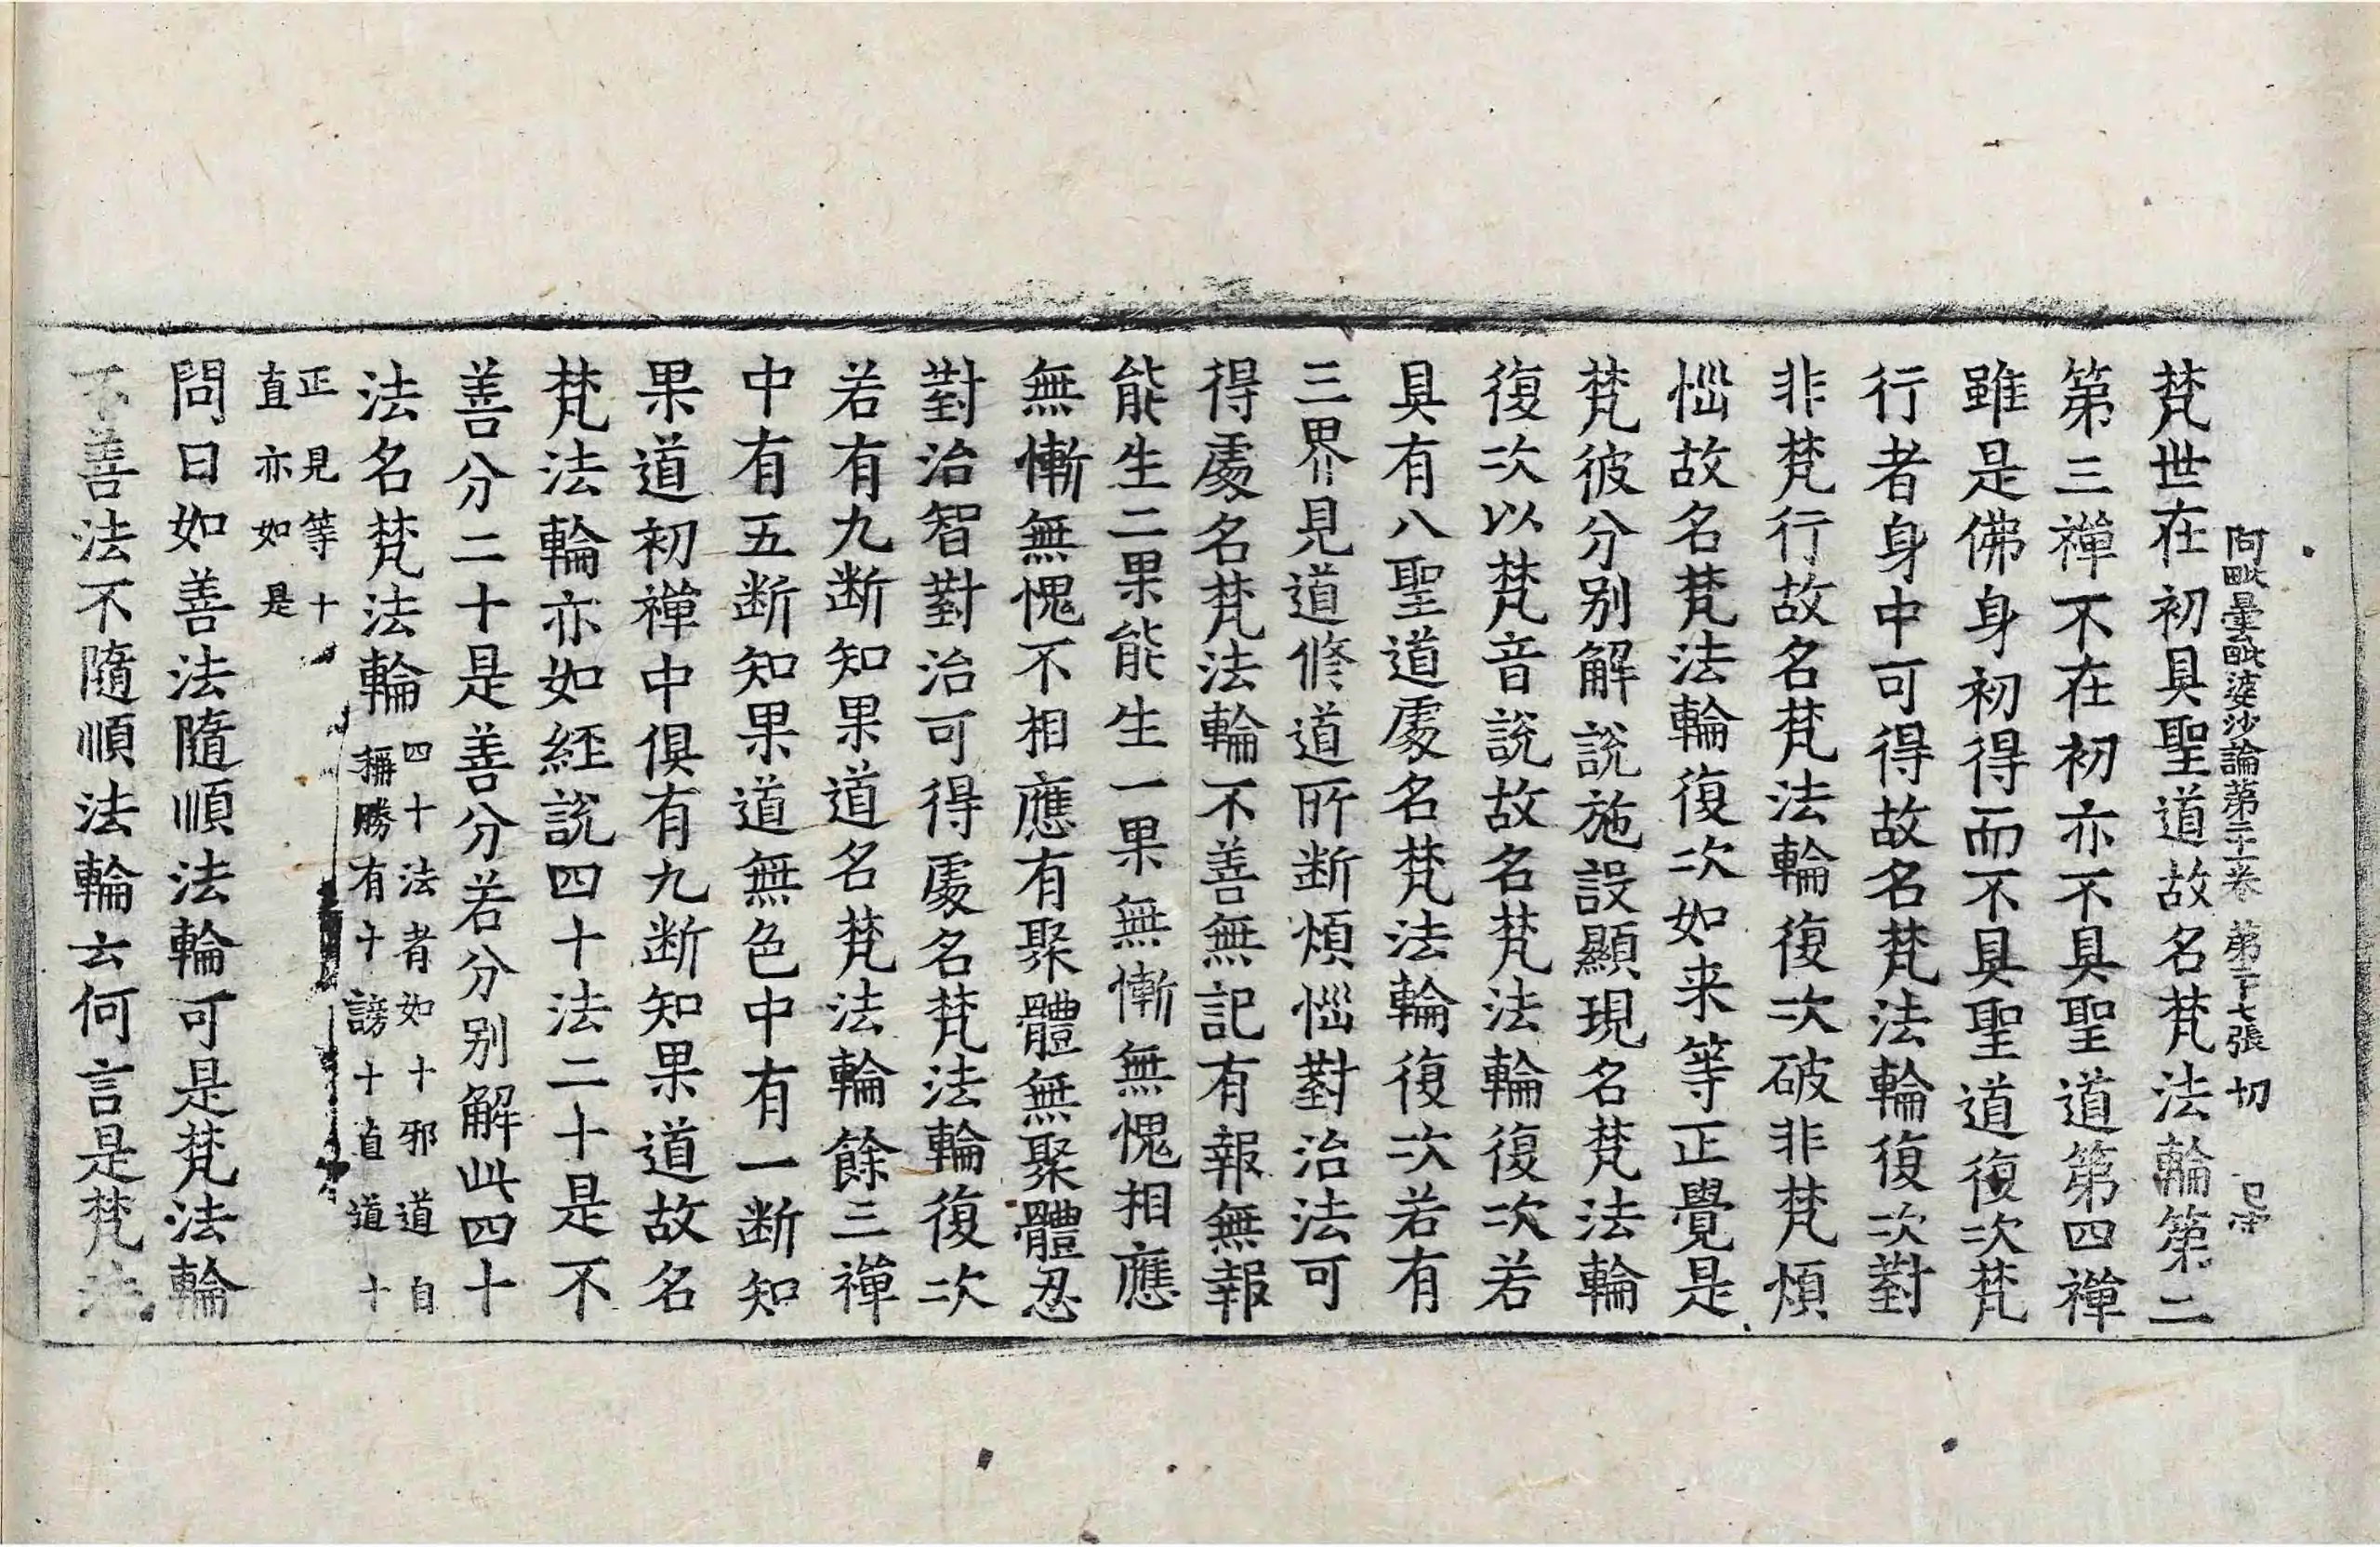 阿毗曇毗婆沙論第二十卷 第二十七張 切
梵世在初具聖道故名梵法輪第二
第三禪不在初亦不具聖道第四禪
雖是佛身初得而不具聖道復次梵
行者身中可得故名梵法輪復次對
非梵行故名梵法輪復次破非梵煩
惱故名梵法輪復次如来等正覺是
梵彼分别解說施設顯現名梵法輪
復次以梵音說故名梵法輪復次若
具有八聖道處名梵法輪復次若有
三界見道修道所断煩惱對治法可
得處名梵法輪不善無記有報無報
能生二果能生一果無慚無愧相應
無慚無愧不相應有聚體無聚體忍
對治智對治可得處名梵法輪復次
若有九断知果道名梵法輪餘三禪
中有五断知果道無色中有一断知
果道初禪中俱有九断知果道故名
梵法輪亦如経說四十法二十是不
善分二十是善分若分别解此四十
法名梵法輪
四十法者如十邪道自
稱勝有十謗十直道十
正見等十
直亦如是
問曰如善法隨順法輪可是梵法輪
不善法不隨順法輪云何言是梵法